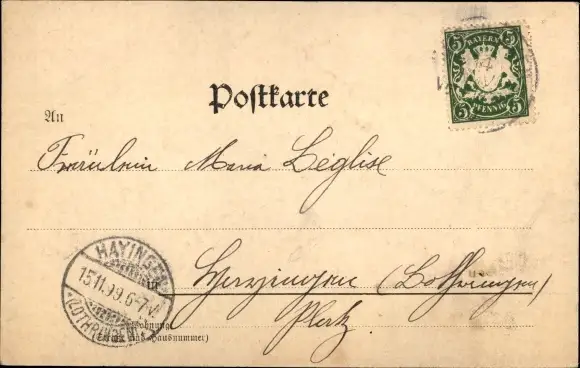 Postkarte
5 BAYERN 5
5 PFENNIG 5
An
Fräulein Maria Léglise
HAYINGEN
15.11.99.6-7.V.
(LOTHRINGEN)
in Hayingen (Lothringen)
Platz.
Wohnung
(Straße und Hausnummer)